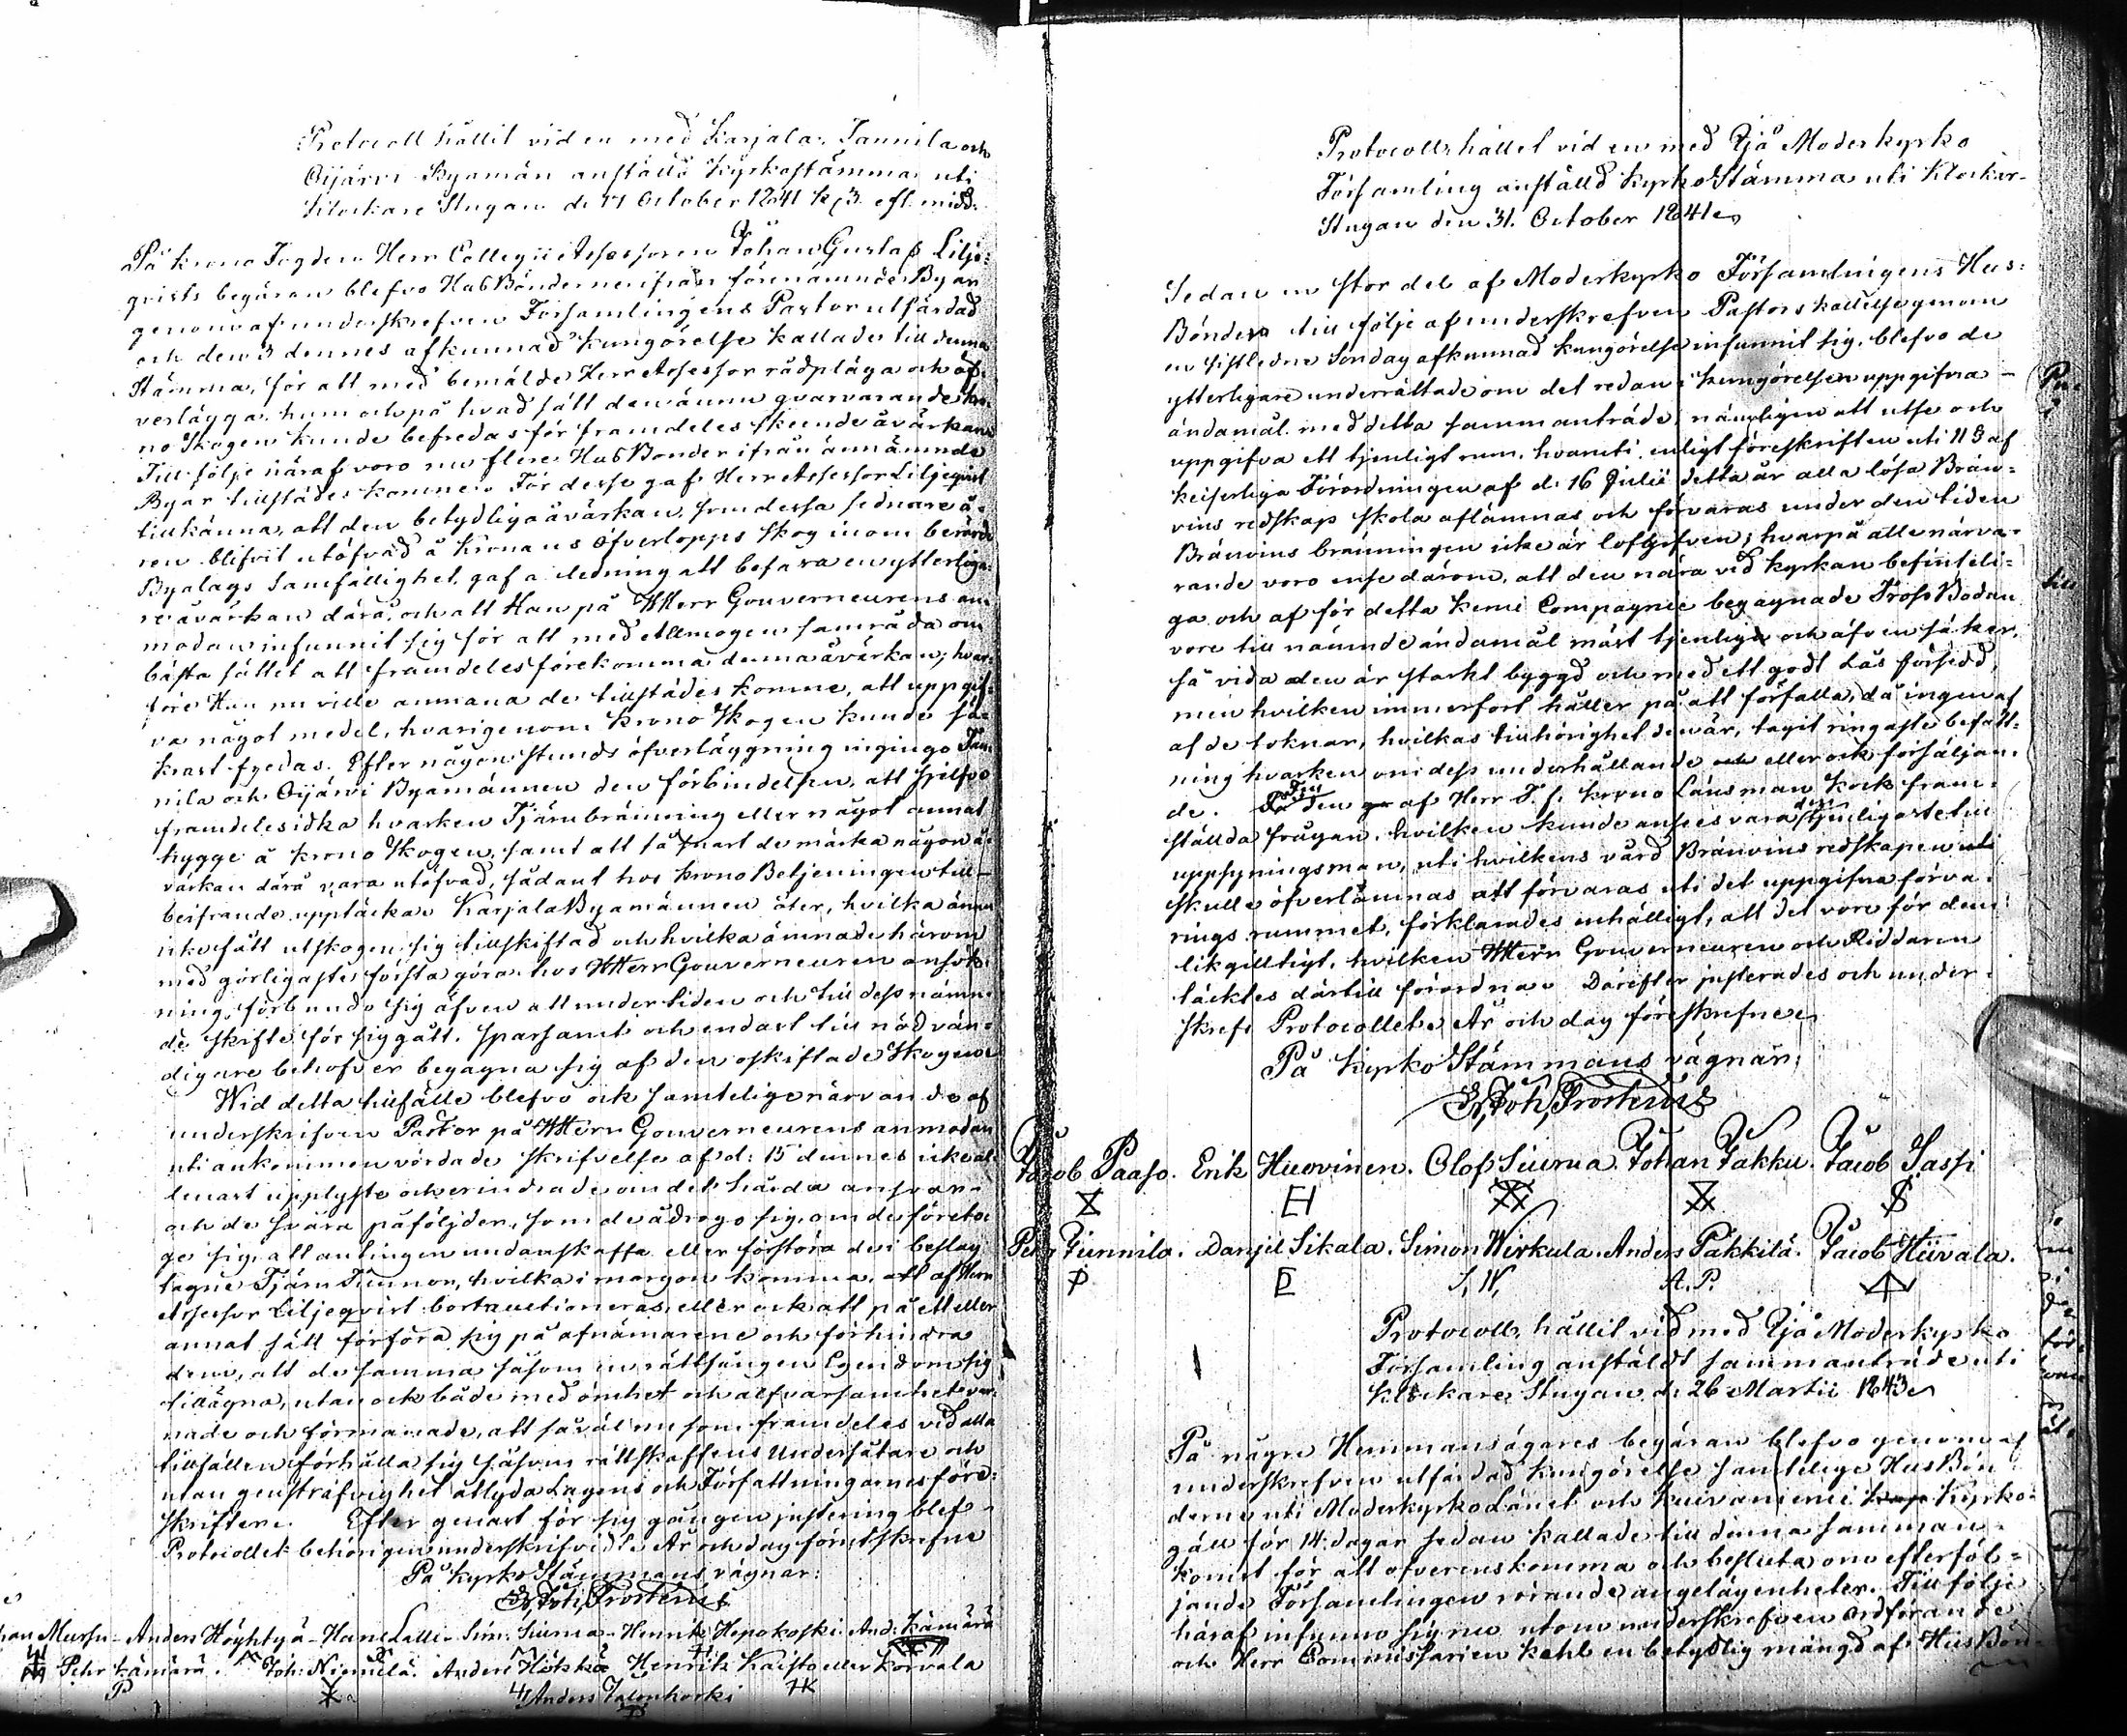 Protocoll hållit vid en med Karjala, Tannila och
Oijärvi Byamän anställd Kyrkostämma uti
Klockare Stugan d. 17 October 1841 kl 3 eft. midd.
På Krono Fogden Herr Collegii Assessoren Johan Gustaf Lilje-
qvists begäran blefvo HusBönderne ifrån förenämnde Byar
genom af underskrefven Församlingens Pastor utfärdad
och den 3 dennes afkunnad kungörelse kallade till denna
Stämma, för att med bemälde Herr Assessor rådpläga och öf-
verlägga, hum och på hvad sätt den ännu qvarvarande Kro-
no Skogen kunde befredas för framdeles skeende åvärkan
Till följe häraf voro nu flere HusBönder ifrån ännämnde
Byar tillstädes komne. För desse gaf Herr Assessor Liljeqvist
tillkänna, att den betydliga åvärkan, som dessa sednare å-
ren blifvit utöfvad å Kronans Öfverlopps Skog inom berörde
Byalags Samfällighet, gaf anledning att befara en ytterliga-
re åvärkan därå, och att Han på HHerr Gouverneurens an-
modan infunnit sig för att med Allmogen samråda om
bästa sättet att framdeles förekomma denna åvärkan; hvar-
före Han nu ville anmana de tillstädes komne, att uppgif-
va något medel, hvarigenom Krono Skogen kunde så-
krast fredas. Efter någon stunds öfverläggning ingingo Tan-
nila och Oijärvi Byamännen den förbindelsen, att sjelfve
framdeles idka hvarken Tjärubränning eller något annat
hygge å Krono Skogen, samt att så snart de märka någon å-
värkan därå vara utöfvad, sådant hos Krono Betjeningen till
beifrande upptäcka. Karjala Byamännen åter, hvilka ännu
icke fått utskogen sig tillskiftad och hvilka ämnade härom
med görligaste första göra hos HHerr Gouverneuren ansök-
ning, förbundo sig äfven att under tiden och till dess nämn-
de skifte för sig gått, sparsamt och endast till nödvän-
digare behofver begagna sig af den oskiftade Skogen.
Wid detta tillfälle blefvo ock samtelige närvarande af
underskrifven Pastor på HHerr Gouverneurens anmodan
uti ankommen vördade skrifvelse af d: 15 dennes icke al-
lenast upplyste och erindrade om det hårda ansvar
och de svåra påföljder, som de ådrogo sig, om de företo-
go sig, att antingen undanskaffa eller förstöra de i beslag
tagne Tjäru Tunnor, hvilka i morgon komma att af Herr
Assessor Liljeqvist bortauctioneras, eller ock att på ett eller
annat sätt förföra sig på afnämarene och förhindra
dem, att de samma såsom en rättfången Egendom sig
tillägna, utan ock både med ömhet och alfvarsamhet var-
nade och förmanade, att såväl nu som framdeles vid alla
tillfällen förhålla sig såsom rättskaffens Undersåtare och
utan genstráfvighet åtlyda Lagens och Författningarnes före-
skrifter. Efter genast för sig gången justering blef
Protocollet behörigen underskrifvidt. År och dag förutskrefne
På Kyrko Stämmans vägnar:
Er. Joh. Frosterus
Mursu - Anders Höyhtyä - Hans Lilli - Sim. Siurua - Henrik Hepokoski. And. Kämärä
Pehr Kämärä. Joh: Niemelä. Anders Hökkä Henrik Kaisto eller Korvala
P
Anders Jalonkoski HK
Protocoll, hållet vid en med Ijå Moderkyrko
Församling anställd KyrkoStämma uti Klockar-
Stugan den 31. October 1841.
Sedan en stor del af Moderkyrko Församlingens Hus-
Bönder till följe af underskrefven Pastors kallelse genom
en sistledne Söndag afkunnad kungörelse infunnit sig, blefvo de
ytterligare underrättade om det redan i kungörelsen uppgifna
ändamål med detta sammanträde, nämligen att utse och
uppgifva ett tjenligt rum, hvaruti enligt föreskriften uti 11 § af
Keiserliga Förordningen af d. 16 Julii detta år alla lösa Brän-
vins redskap skola aflämnas och förvaras under den tiden
Bränvins bränningen icke är lofgifven; hvarpå alle närva-
rande voro ense därom, att den nära vid kyrkan befinteli-
ga och af för detta Kemi Compagnie begagnade Tross Bodan
vore till nämnde ändamål mäst tjenlig och äfven säker,
så vida den är starkt byggd och med ett godt Lås försedd,
men hvilken immerfort håller på att förfalla, då ingen af
af de soknar, hvilkas tillhörighet den är, tagit ringaste befatt-
ning hvarken om dess underhållande och eller ock försäljan-
de. På den af Herr T. f. Krono Länsman Kock fram-
ställda frågan, hvilken kunde anses vara den tjenligaste till
uppsyningsman, uti hvilkens vård Bränvins redskapen
skulle öfverlämnas att förvaras uti det uppgifna förva-
rings rummet, förklarades enhälligt, att det vore för dem
likgilltigt, hvilken HHerr Gouverneuren och Riddaren
täcktes därtill förordna. Därefter justerades och under-
skrefs Protocollet. År och dag föreskrefne
På Kyrko Stämmans vägnar:
Er. Joh. Frosterus
Jacob Paaso. Erik Huovinen. Olof Siurua. Johan Jakku. Jacob Saspi
Pehr Tiennila. Daniel Sikala. Simon Wirkula. Anders Pakkilä. Jacob Hiivala.
S. W. A. P.
Protocoll, hållit vid med Ijå Moderkyrko
Församling anstäldt sammanträde uti
Klockare Stugan d. 26 Martii 1843
På några Hemmansägares begäran blefvo genom af
underskrefven utfärdad kungörelse samtelige HusBön-
derne uti Moderkyrko Länet och Kuivaniemi Kyrko-
gäll för 14 dagar sedan kallade till denna samman-
komst för att öfverenskomma och besluta om efterföl-
jande Församlingen rörande angelägenheter. Till följe
häraf infunno sig nu utom underskrefven Ordförande
och Herr Commissarien Kehl en betydlig mängd af HusBön-